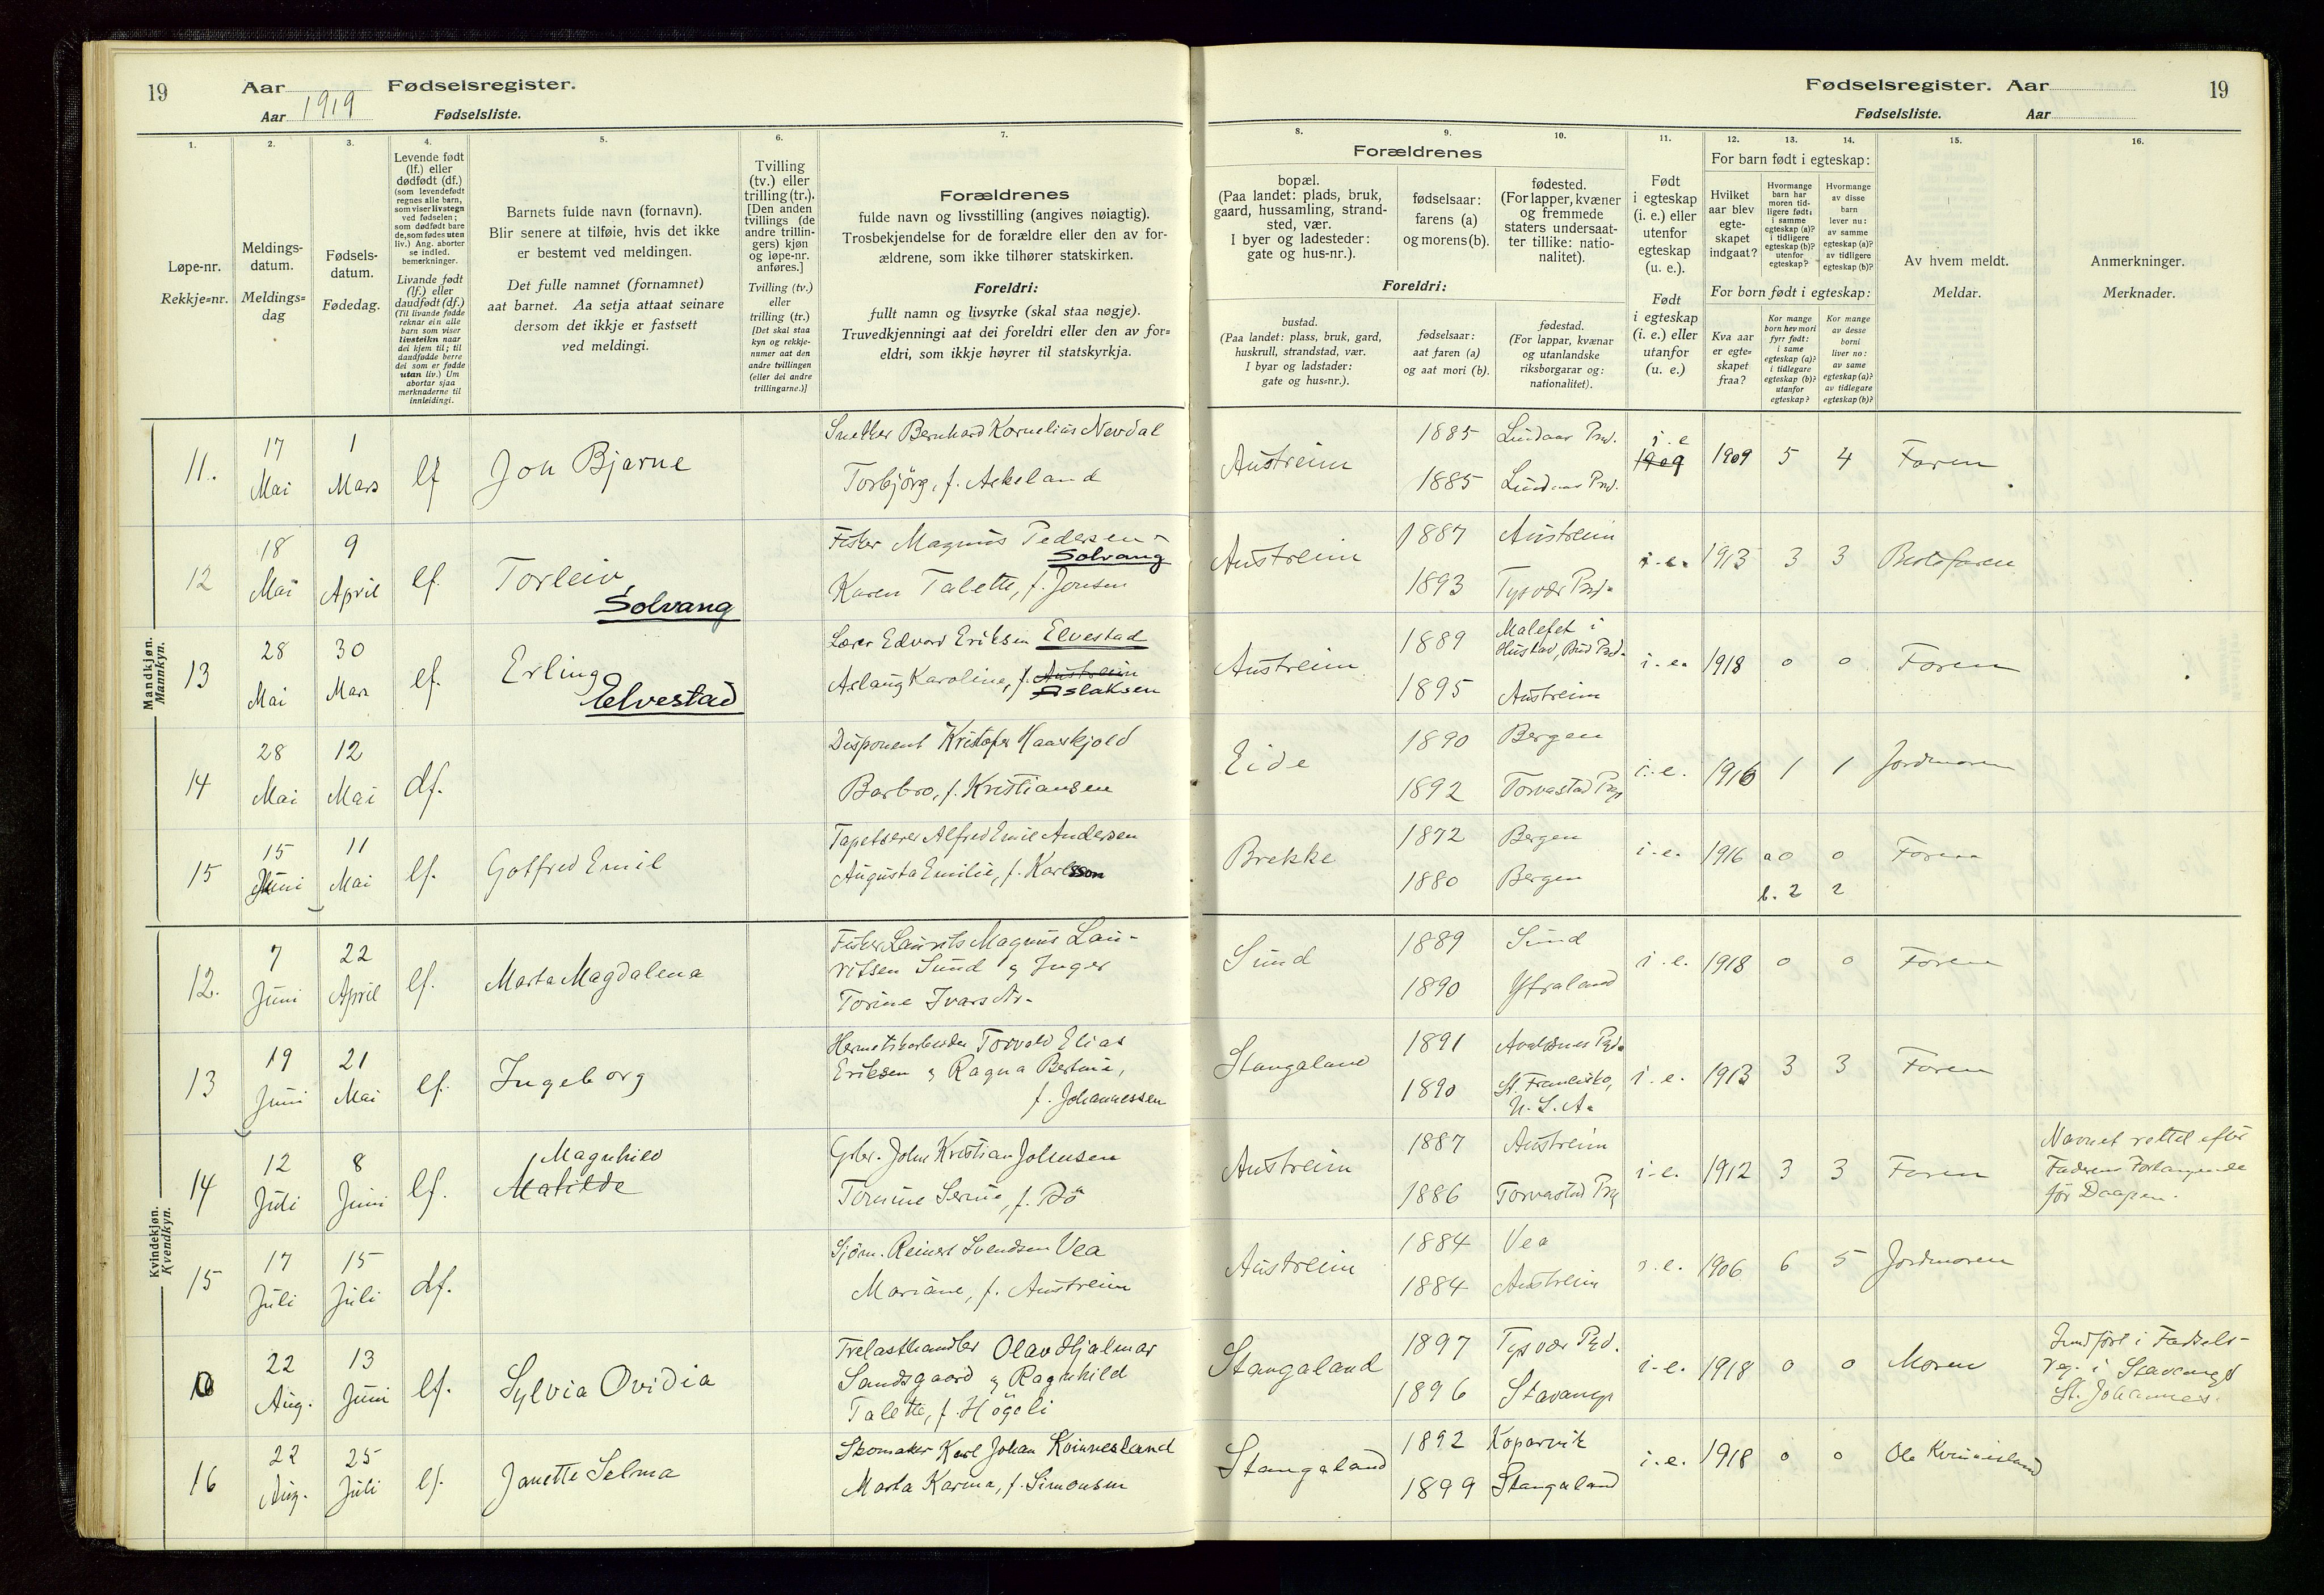 19
Aar
Fødselsregister.
Aar 1919
Fødselsliste.
1.
Løpe-nr.
Rekkje=nr.
2.
Meldings-
datum.
Meldings=
dag
3.
Fødsels-
datum.
Fødedag.
4.
Levende født
(lf.) eller
dødfødt (df.)
(som levendefødt
regnes alle barn,
som viser livstegn
ved fødselen;
som dødfødt bare
de, som fødes uten
liv.) Ang. aborter
se indled.
bemerkninger.
Livande født
(lf.) eller
daudfødt (df.)
(Til livande fødde
reknar ein alle
barn som viser
livsteikn naar
dei kjem til; til
daudfødde berre
dei som er fødde
utan liv.) Um
abortar sjaa
merknaderne til
innleidingi.
5.
Barnets fulde navn (fornavn).
Blir senere at tilføie, hvis det ikke
er bestemt ved meldingen.
Det fulle namnet (fornamnet)
aat barnet. Aa setja attaat seinare
dersom det ikkje er fastsett
ved meldingi.
6.
Tvilling
(tv.) eller
trilling (tr.).
[Den anden
tvillings (de
andre trillin-
gers) kjøn
og løpe-nr.
anføres.]
Tvilling (tv.)
eller
trilling (tr.)
[Det skal staa
kyn og rekkje-
numer aat den
andre tvillingen
(eller dei andre
trillingarne.)]
7.
Forældrenes
fulde navn og livsstilling (angives nøiagtig).
Trosbekjendelse for de forældre eller den av for-
ældrene, som ikke tilhører statskirken.
Foreldri:
fullt namn og livsyrke (skal staa nøgje).
Truvedkjenningi aat dei foreldri eller den av for-
eldri, som ikkje høyrer til statskyrkja.
Mandkjøn.
Mannkyn.
11.
17
Mai
1
Mars
lf
Jon Bjarne
Snekker Bernhard Kornelius Nevdal
Torbjörg, f. Askeland
12
18
Mai
9
April
lf.
Torleiv
Solvang
Fisker Magnus Pedersen
Solvang
Karen Talette, f. Jonsen
13
28
Mai
30
Mars
lf.
Erling
Elvestad
Lærer Edvard Eriksen Elvestad
Aslaug Karoline, f. Austreim
Aslaksen
14
28
Mai
12
Mai
df.
Disponent Kristofer Haaskjold
Barbro, f. Kristiansen
15
15
Juni
11
Mai
lf.
Gotfred Emil
Tapetserer Alfred Emil Andersen
Augusta Emilie, f. Karlsson
Kvindekjøn.
Kvendkyn.
12.
7
Juni
22
April
lf.
Marta Magdalena
Fisker Laurits Magnus Lau-
ritsen Sund & Inger
Torine Ivarsdtr.
13
19
Juni
21
Mai
lf.
Ingeborg
Hermetikarbeider Torvald Elias
Eriksen & Ragna Bertine,
f. Johannessen
14
12
Juli
8
Juni
lf.
Magnhild
Matilde
Gbr. John Kristian Johnsen
Tomine Serine, f. Bö
15
17
Juli
15
Juli
df.
Sjöm. Reinert Svendsen Vea
Mariane, f. Austreim
22
Aug.
13
Juni
lf.
Sylvia Ovidia
Trelasthandler Olav Hjalmar
Sandsgaard & Ragnhild
Talette, f. Högeli
16
22
Aug.
25
Juli
lf.
Janette Selma
Skomaker Karl Johan Kvinnesland
Marta Karina, f. Simonsen
Fødselsregister. Aar
19
Fødselsliste.
Aar
8.
Forældrenes
bopæl.
(Paa landet: plads, bruk,
gaard, hussamling, strand-
sted, vær.
I byer og ladesteder:
gate og hus-nr.).
Foreldri:
bustad.
(Paa landet: plass, bruk, gard,
huskrull, strandstad, vær.
I byar og ladstader:
gate og hus=nr.).
9.
fødselsaar:
farens (a)
og morens (b).
fødselsaar:
aat faren (a)
og aat mori (b).
10.
fødested.
(For lapper, kvæner
og fremmede
staters undersaat-
ter tillike: natio-
nalitet).
fødestad.
(For lappar, kvænar
og utanlandske
riksborgarar og:
nationalitet).
11.
Født
i egteskap
(i. e.) eller
utenfor
egteskap
(u. e.).
Født
i egteskap
(i. e.) eller
utanfor
(u. e.)
12.
For barn født i egteskap:
Hvilket
aar blev
egte-
skapet
indgaat?
For born født i egteskap:
Kva aar
er egte=
skapet
fraa?
13.
Hvormange
barn har
moren tid-
ligere født:
i samme
egteskap (a)?
i tidligere
egteskap (b)?
utenfor
egteskap?
Kor mange
born hev mori
fyrr født:
i same
egteskap (a)?
i tidlegare
egteskap (b)?
utanfor
egteskap?
14.
Hvormange
av disse
barn
lever nu:
av samme
egteskap (a)?
av tidligere
egteskap (b)?
Kor mange
av desse
borni
liver no:
av same
egteskap (a)?
av tidlegare
egteskap (b)?
15.
Av hvem meldt.
Meldar.
16.
Anmerkninger.
Merknader.
Austreim
1885
1885
Lindaas Prd.
Lindaas Prd.
i. e
1909
1909
5
4
Faren
Austreim
1887
1893
Austreim
Tysvær Prd.
i. e.
1913
3
3
Bestefaren
Austreim
1889
1895
Malefet i
Hustad, Bud Prd.
Austreim
i. e.
1918
0
0
Faren
Eide
1890
1892
Bergen
Torvastad Prg
i. e.
1916
1
1
Jordmoren
Brekke
1872
1880
Bergen
Bergen
i. e.
1916
a 0
0
b. 2
2
Faren
Sund
1889
1890
Sund
Ytraland
i. e.
1918
0
0
Faren
Stangaland
1891
1890
Avaldsnes Prd.
St. Francisko,
U. S. A.
i. e.
1913
3
3
Faren
Austreim
1887
1886
Austreim
Torvastad Prg
i. e.
1912
3
3
Faren
Navnet rettet efter
Faderens Forlangende
för Daapen.
Austreim
1884
1884
Vea
Austreim
i. e.
1906
6
5
Jordmoren
Stangaland
1897
1896
Tysvær Prd.
Stavanger
i. e.
1918
0
0
Moren
Indfört i Fødsels-
reg. i Stavanger
St. Johannes.
Stangaland
1892
1899
Kopervik
Stangaland
i. e.
1918
0
0
Ole Kvinnesland